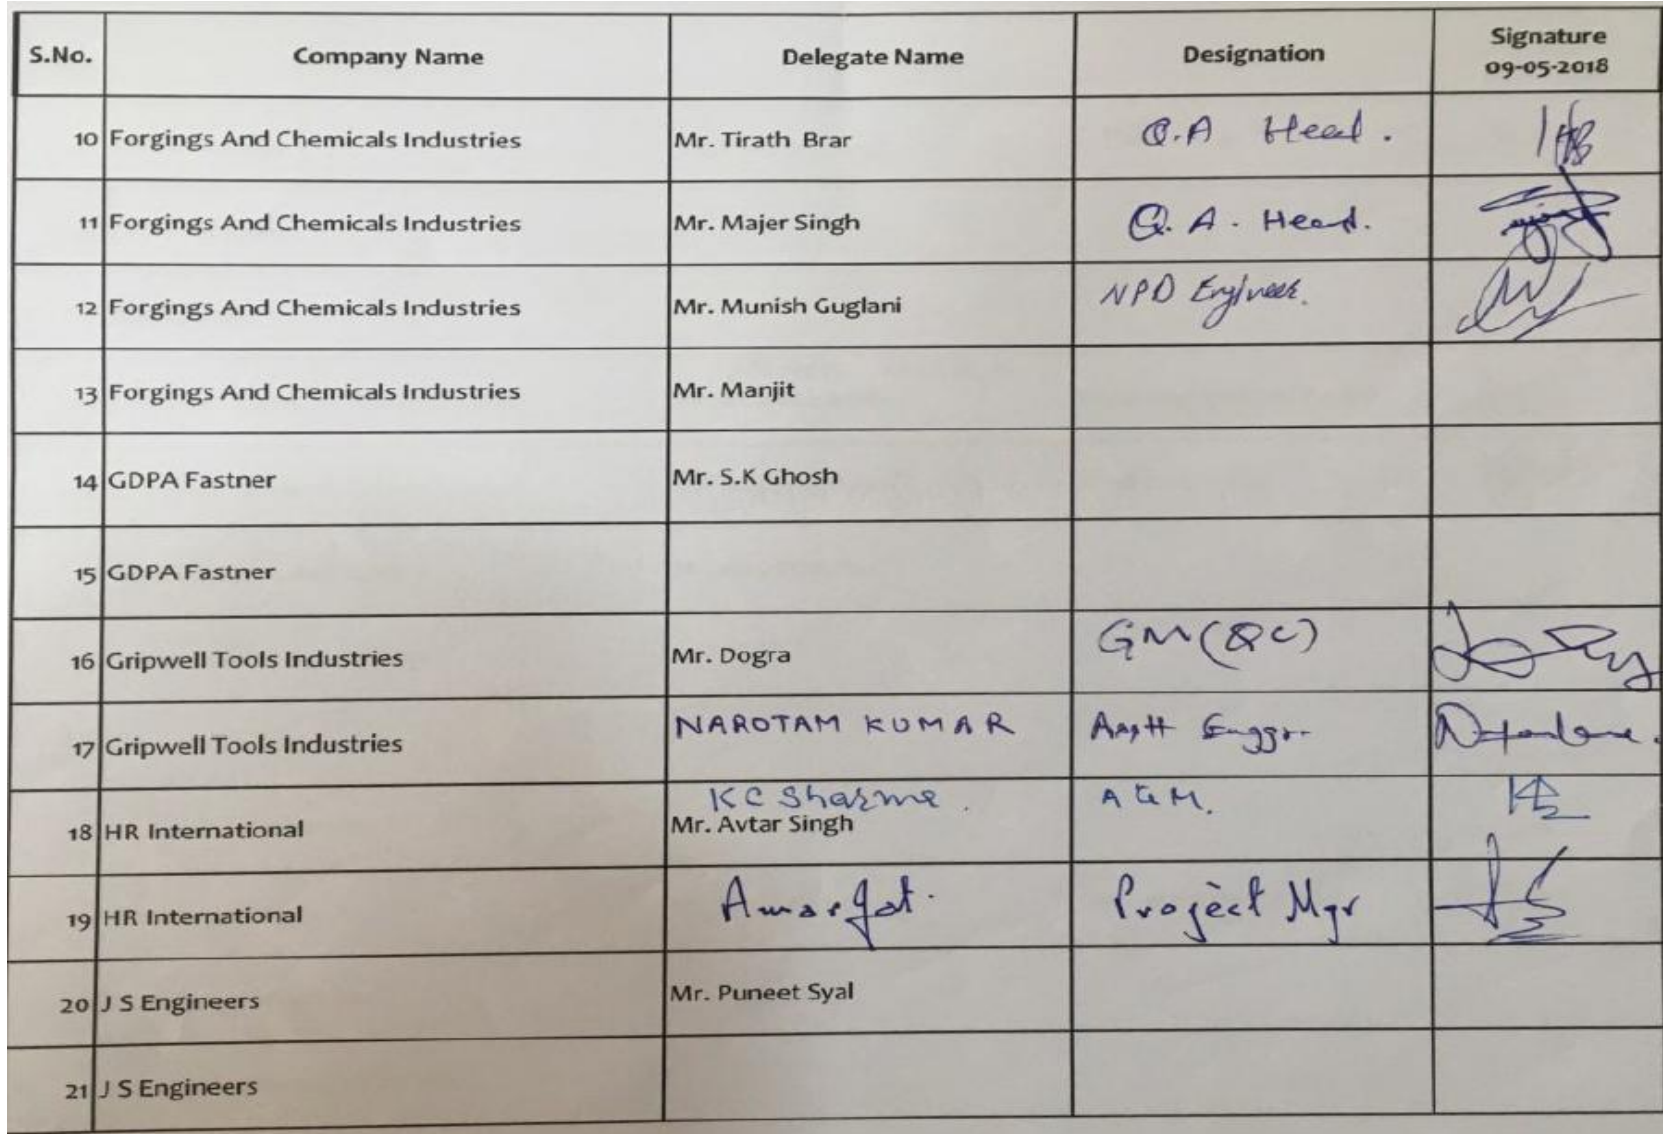 S.No. Company Name Delegate Name Designation Signature
09-05-2018
10 Forgings And Chemicals Industries Mr. Tirath Brar Q.A Head.
11 Forgings And Chemicals Industries Mr. Majer Singh Q.A. Head.
12 Forgings And Chemicals Industries Mr. Munish Guglani NPD Engineer.
13 Forgings And Chemicals Industries Mr. Manjit
14 GDPA Fastner Mr. S.K Ghosh
15 GDPA Fastner
16 Gripwell Tools Industries Mr. Dogra GM (QC)
17 Gripwell Tools Industries NAROTAM KUMAR Asstt Enggr.
KC Sharma. AGM.
18 HR International Mr. Avtar Singh
19 HR International Project Mgr
20 J S Engineers Mr. Puneet Syal
21 J S Engineers